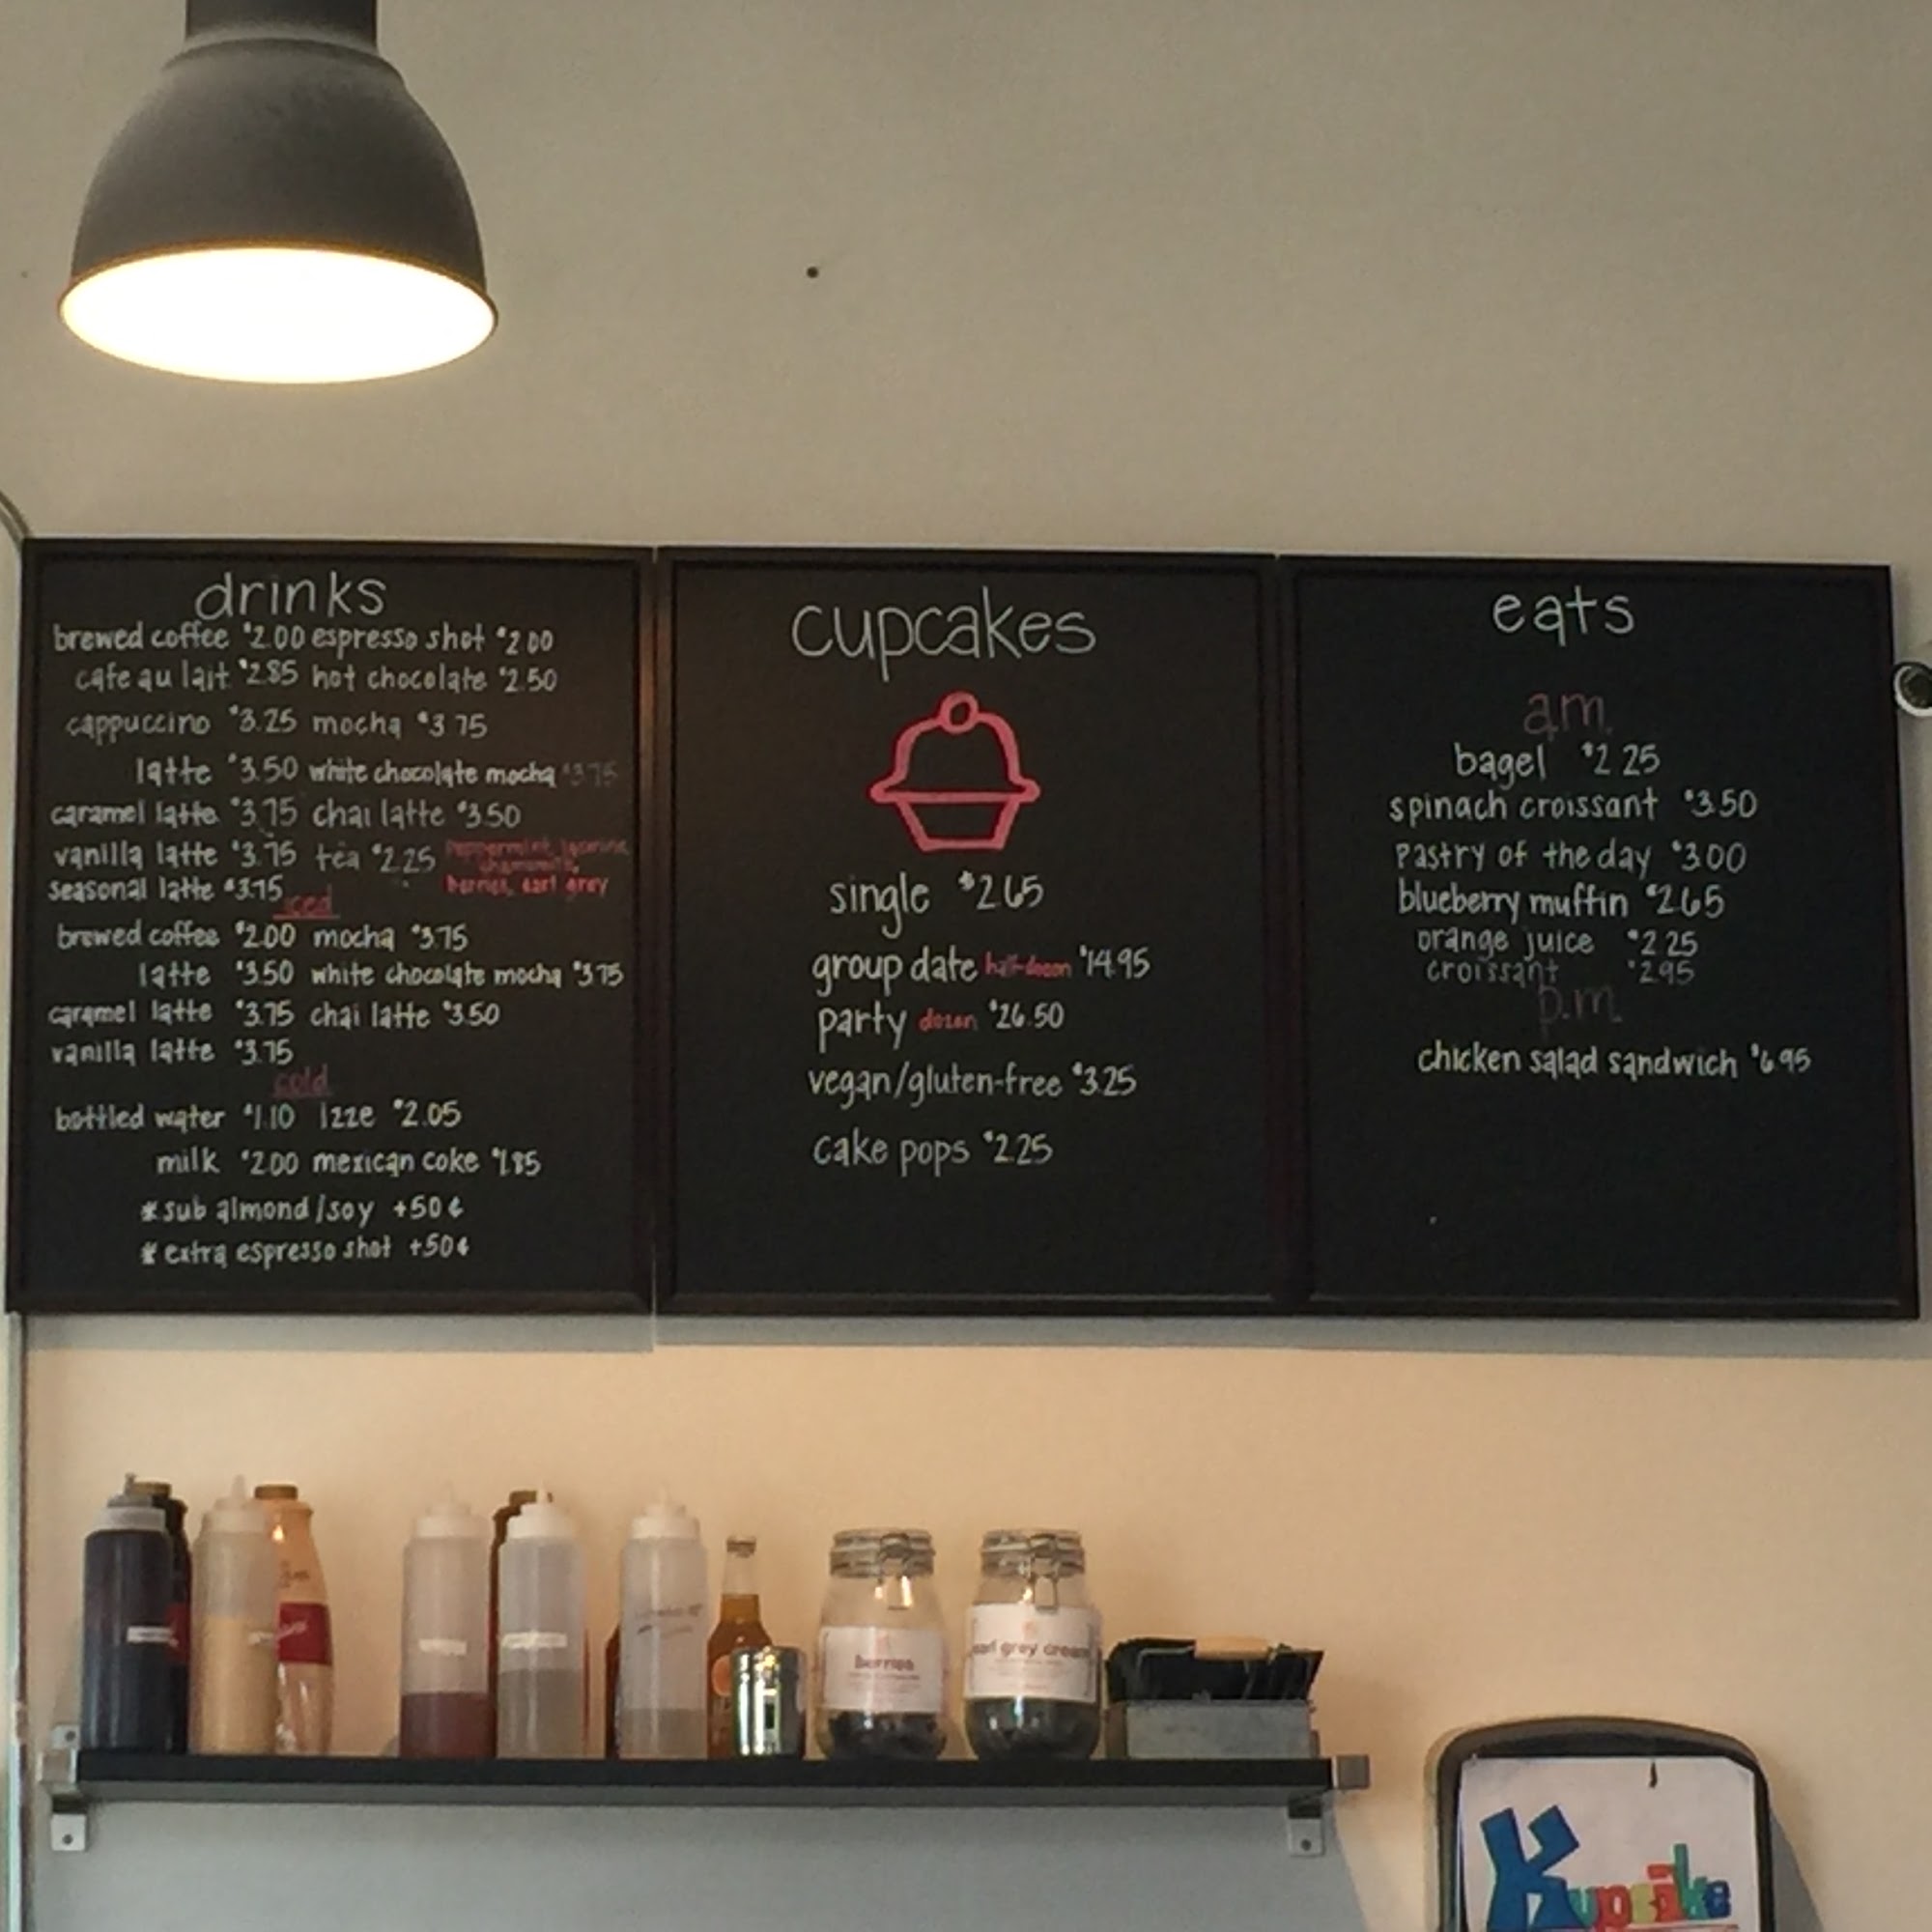 drinks
brewed coffee $2.00 espresso shot $2.00
cafe au lait $2.85 hot chocolate $2.50
cappuccino $3.25 mocha $3.75
latte $3.50 white chocolate mocha $3.75
caramel latte $3.75 chai latte $3.50
vanilla latte $3.75 tea $2.25 peppermint, jasmine,
chamomile,
berries, earl grey
seasonal latte $3.75
iced
brewed coffee $2.00 mocha $3.75
latte $3.50 white chocolate mocha $3.75
caramel latte $3.75 chai latte $3.50
vanilla latte $3.75
cold
bottled water $1.10 Izze $2.05
milk $2.00 mexican coke $1.85
* sub almond/soy +50¢
* extra espresso shot +50¢
cupcakes
single $2.65
group date half-dozen $14.95
party dozen $26.50
vegan/gluten-free $3.25
cake pops $2.25
eats
a.m.
bagel $2.25
spinach croissant $3.50
pastry of the day $3.00
blueberry muffin $2.65
orange juice $2.25
croissant $2.95
p.m.
chicken salad sandwich $6.95
Berries
earl grey cream
Kupcake